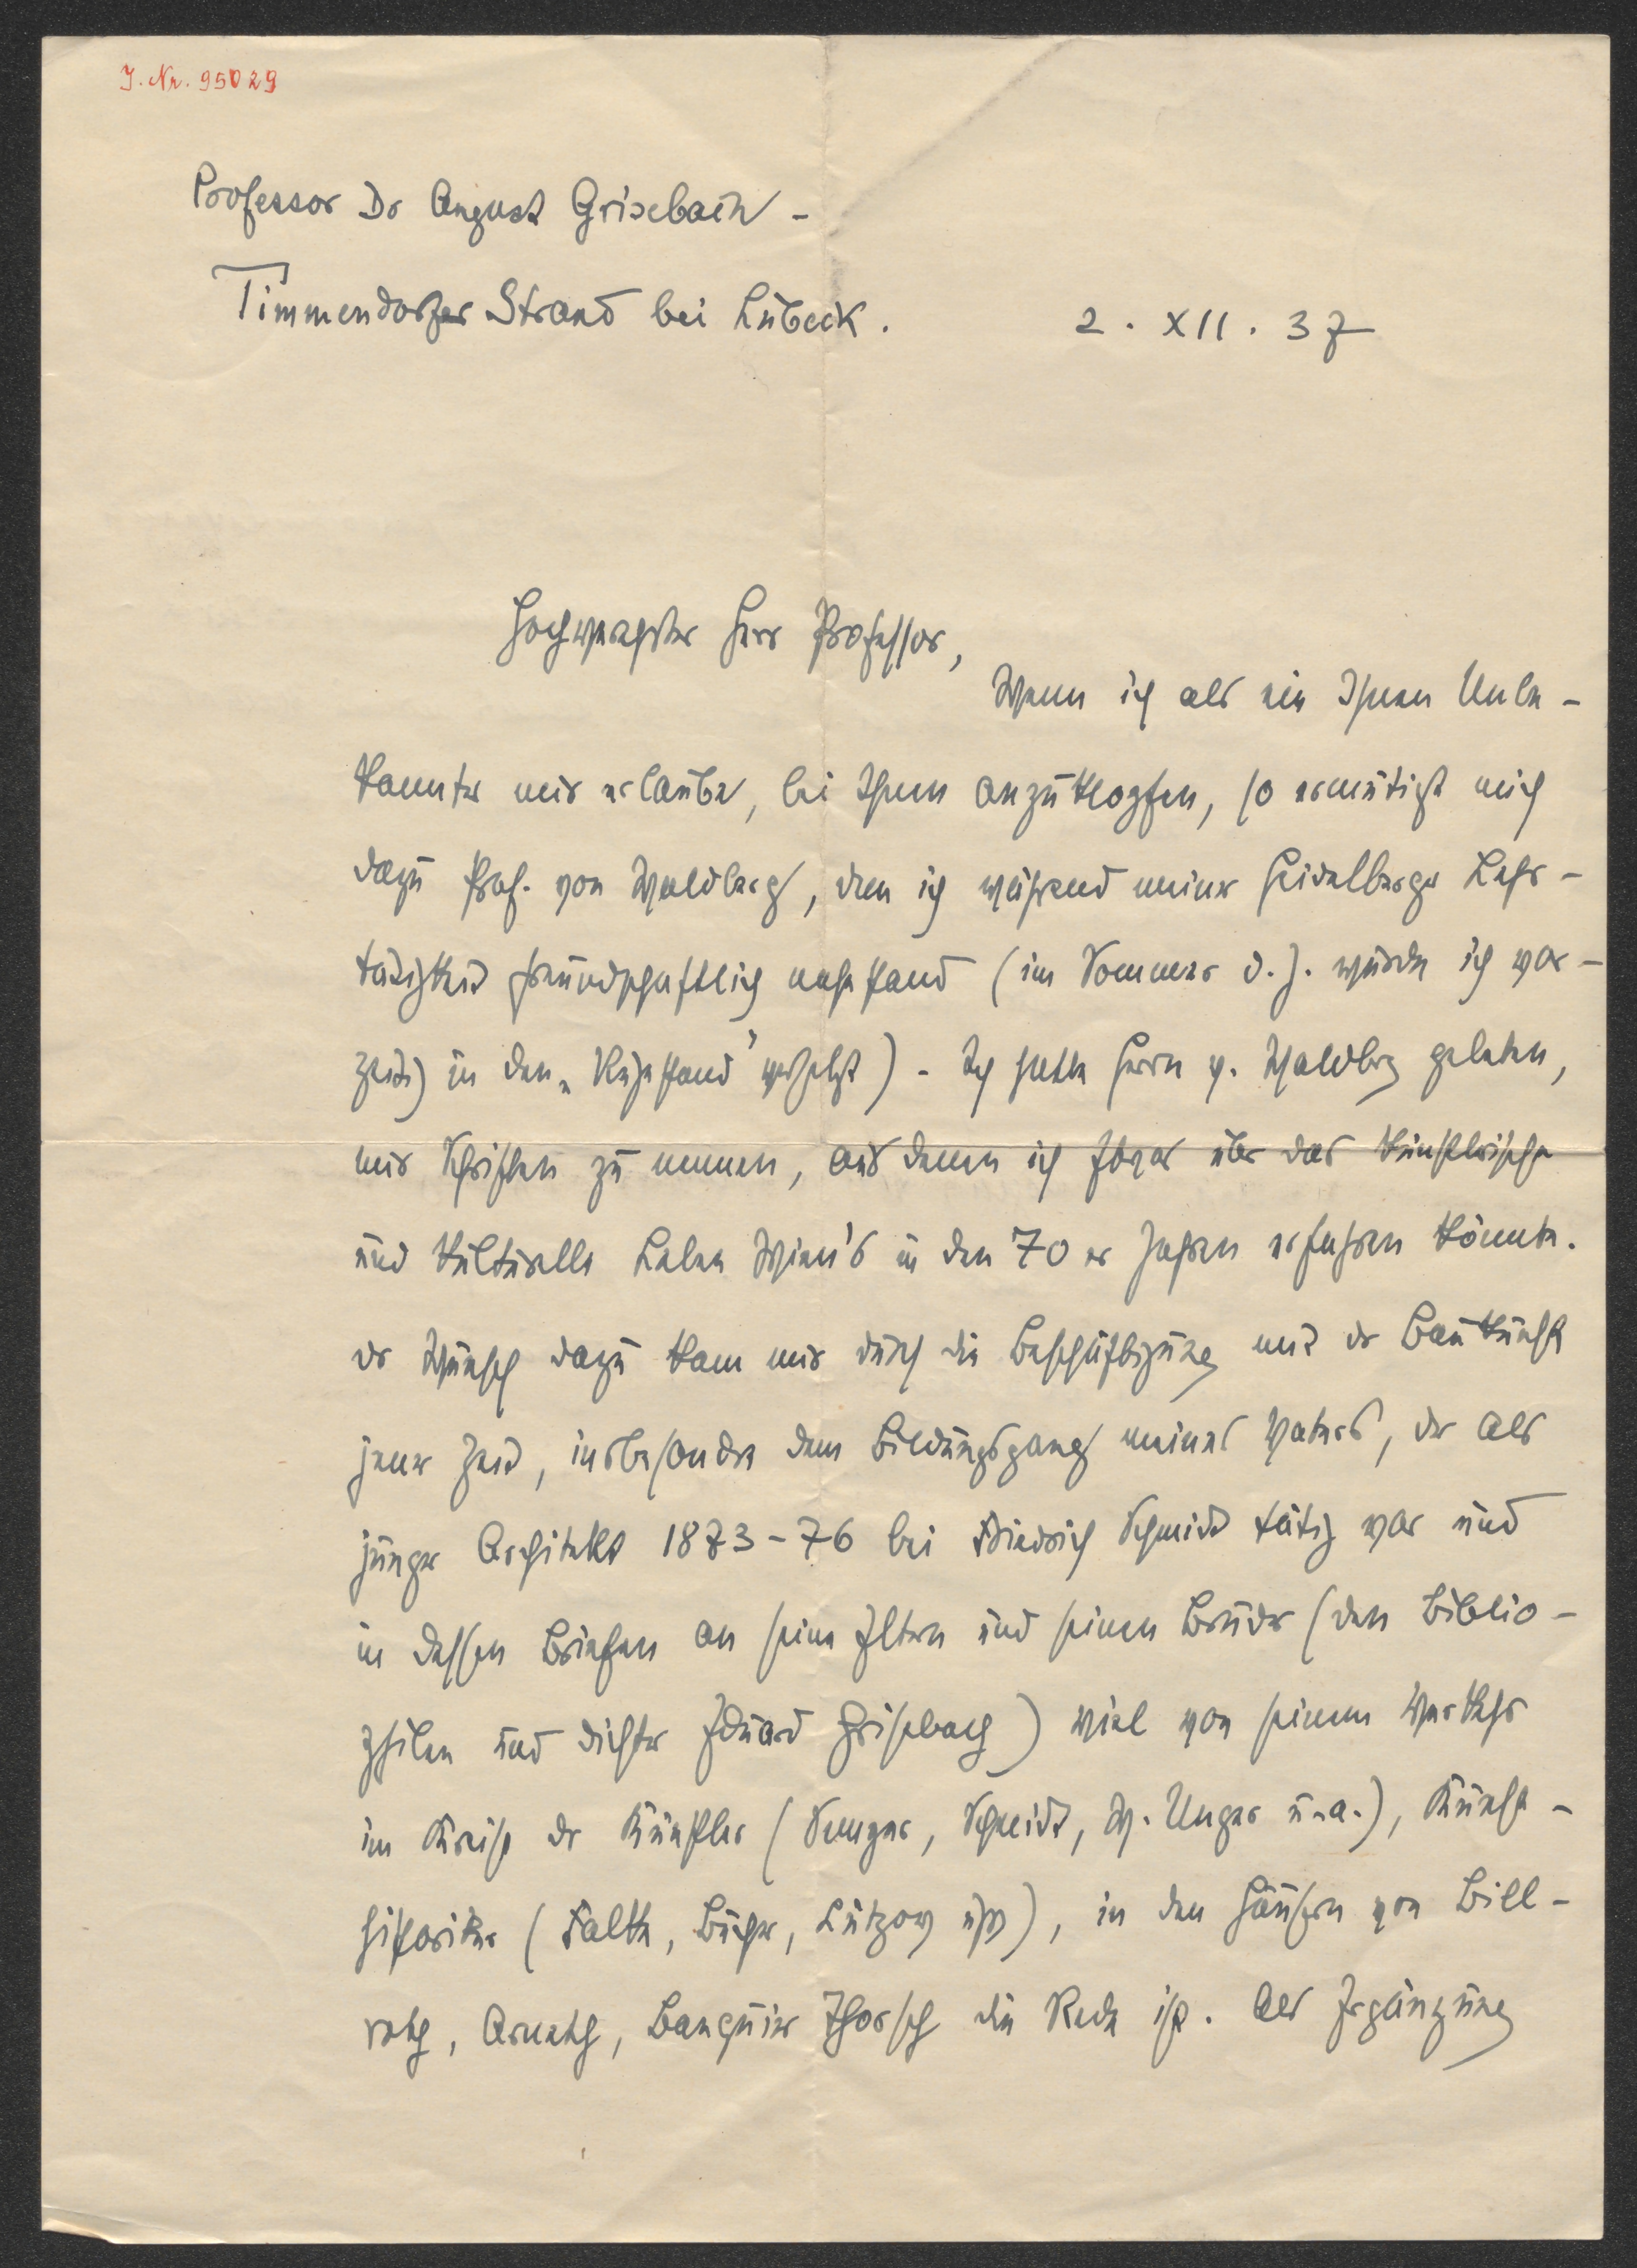 J. Nr. 95029
Professor Dr August Grisebach -
Timmendorfer Strand bei Lübeck.
2. XII. 37
Hochverehrter Herr Professor,
Wenn ich als ein Ihnen Unbe-
kannter mir erlaube, bei Ihnen anzuklopfen, so ermutigt mich
dazu Prof. von Waldberg, dem ich während meiner Heidelberger Lehr-
tätigkeit freundschaftlich nahestand (im Sommer d. J. wurde ich vor-
zeitig in den „Ruhestand" versetzt) - Ich hatte Herrn v. Waldbg gebeten,
mir Schriften zu nennen, aus denen ich Etwas über das künstlerische
und kulturelle Leben Wien's in den 70er Jahren erfahren könnte.
Der Wunsch dazu kam mir durch die Beschäftigung mit der Baukunst
jener Zeit, insbesondre dem Bildungsgang meines Vaters, der als
junger Architekt 1873-76 bei Friedrich Schmidt tätig war und
in dessen Briefen an seine Eltern und seinen Bruder (den Biblio-
philen und Dichter Eduard Grisebach) viel von seinem Verkehr
im Kreise der Künstler (Semper, Schmidt, W. Unger u. a.), Kunst-
historiker (Falke, Bucher, Lützow usw), in den Häusern von Bill-
roth, Arneth, Banquier Thorsch die Rede ist. Als Ergänzung